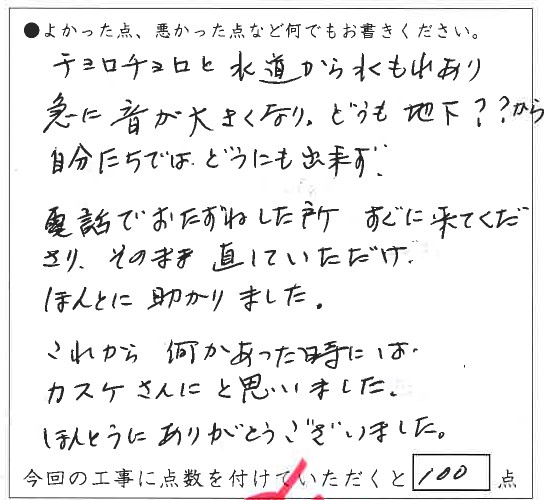 ●よかった点、悪かった点など何でもお書きください。
チョロチョロと水道から水もれあり
急に音が大きくなり。どうも地下??から
自分たちでは、どうにも出来ず、
電話でおたずねした所 すぐに来てくだ
さり、そのまま直していただけ、
ほんとに助かりました。
これから何かあった時には、
カスケさんにと思いました。
ほんとうにありがとうございました。
今回の工事に点数を付けていただくと 100 点